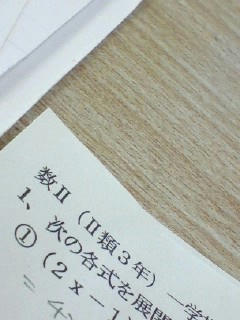 数Ⅱ(Ⅱ類3年) 一学
1、次の各式を展開
①(2x-1)
= 4